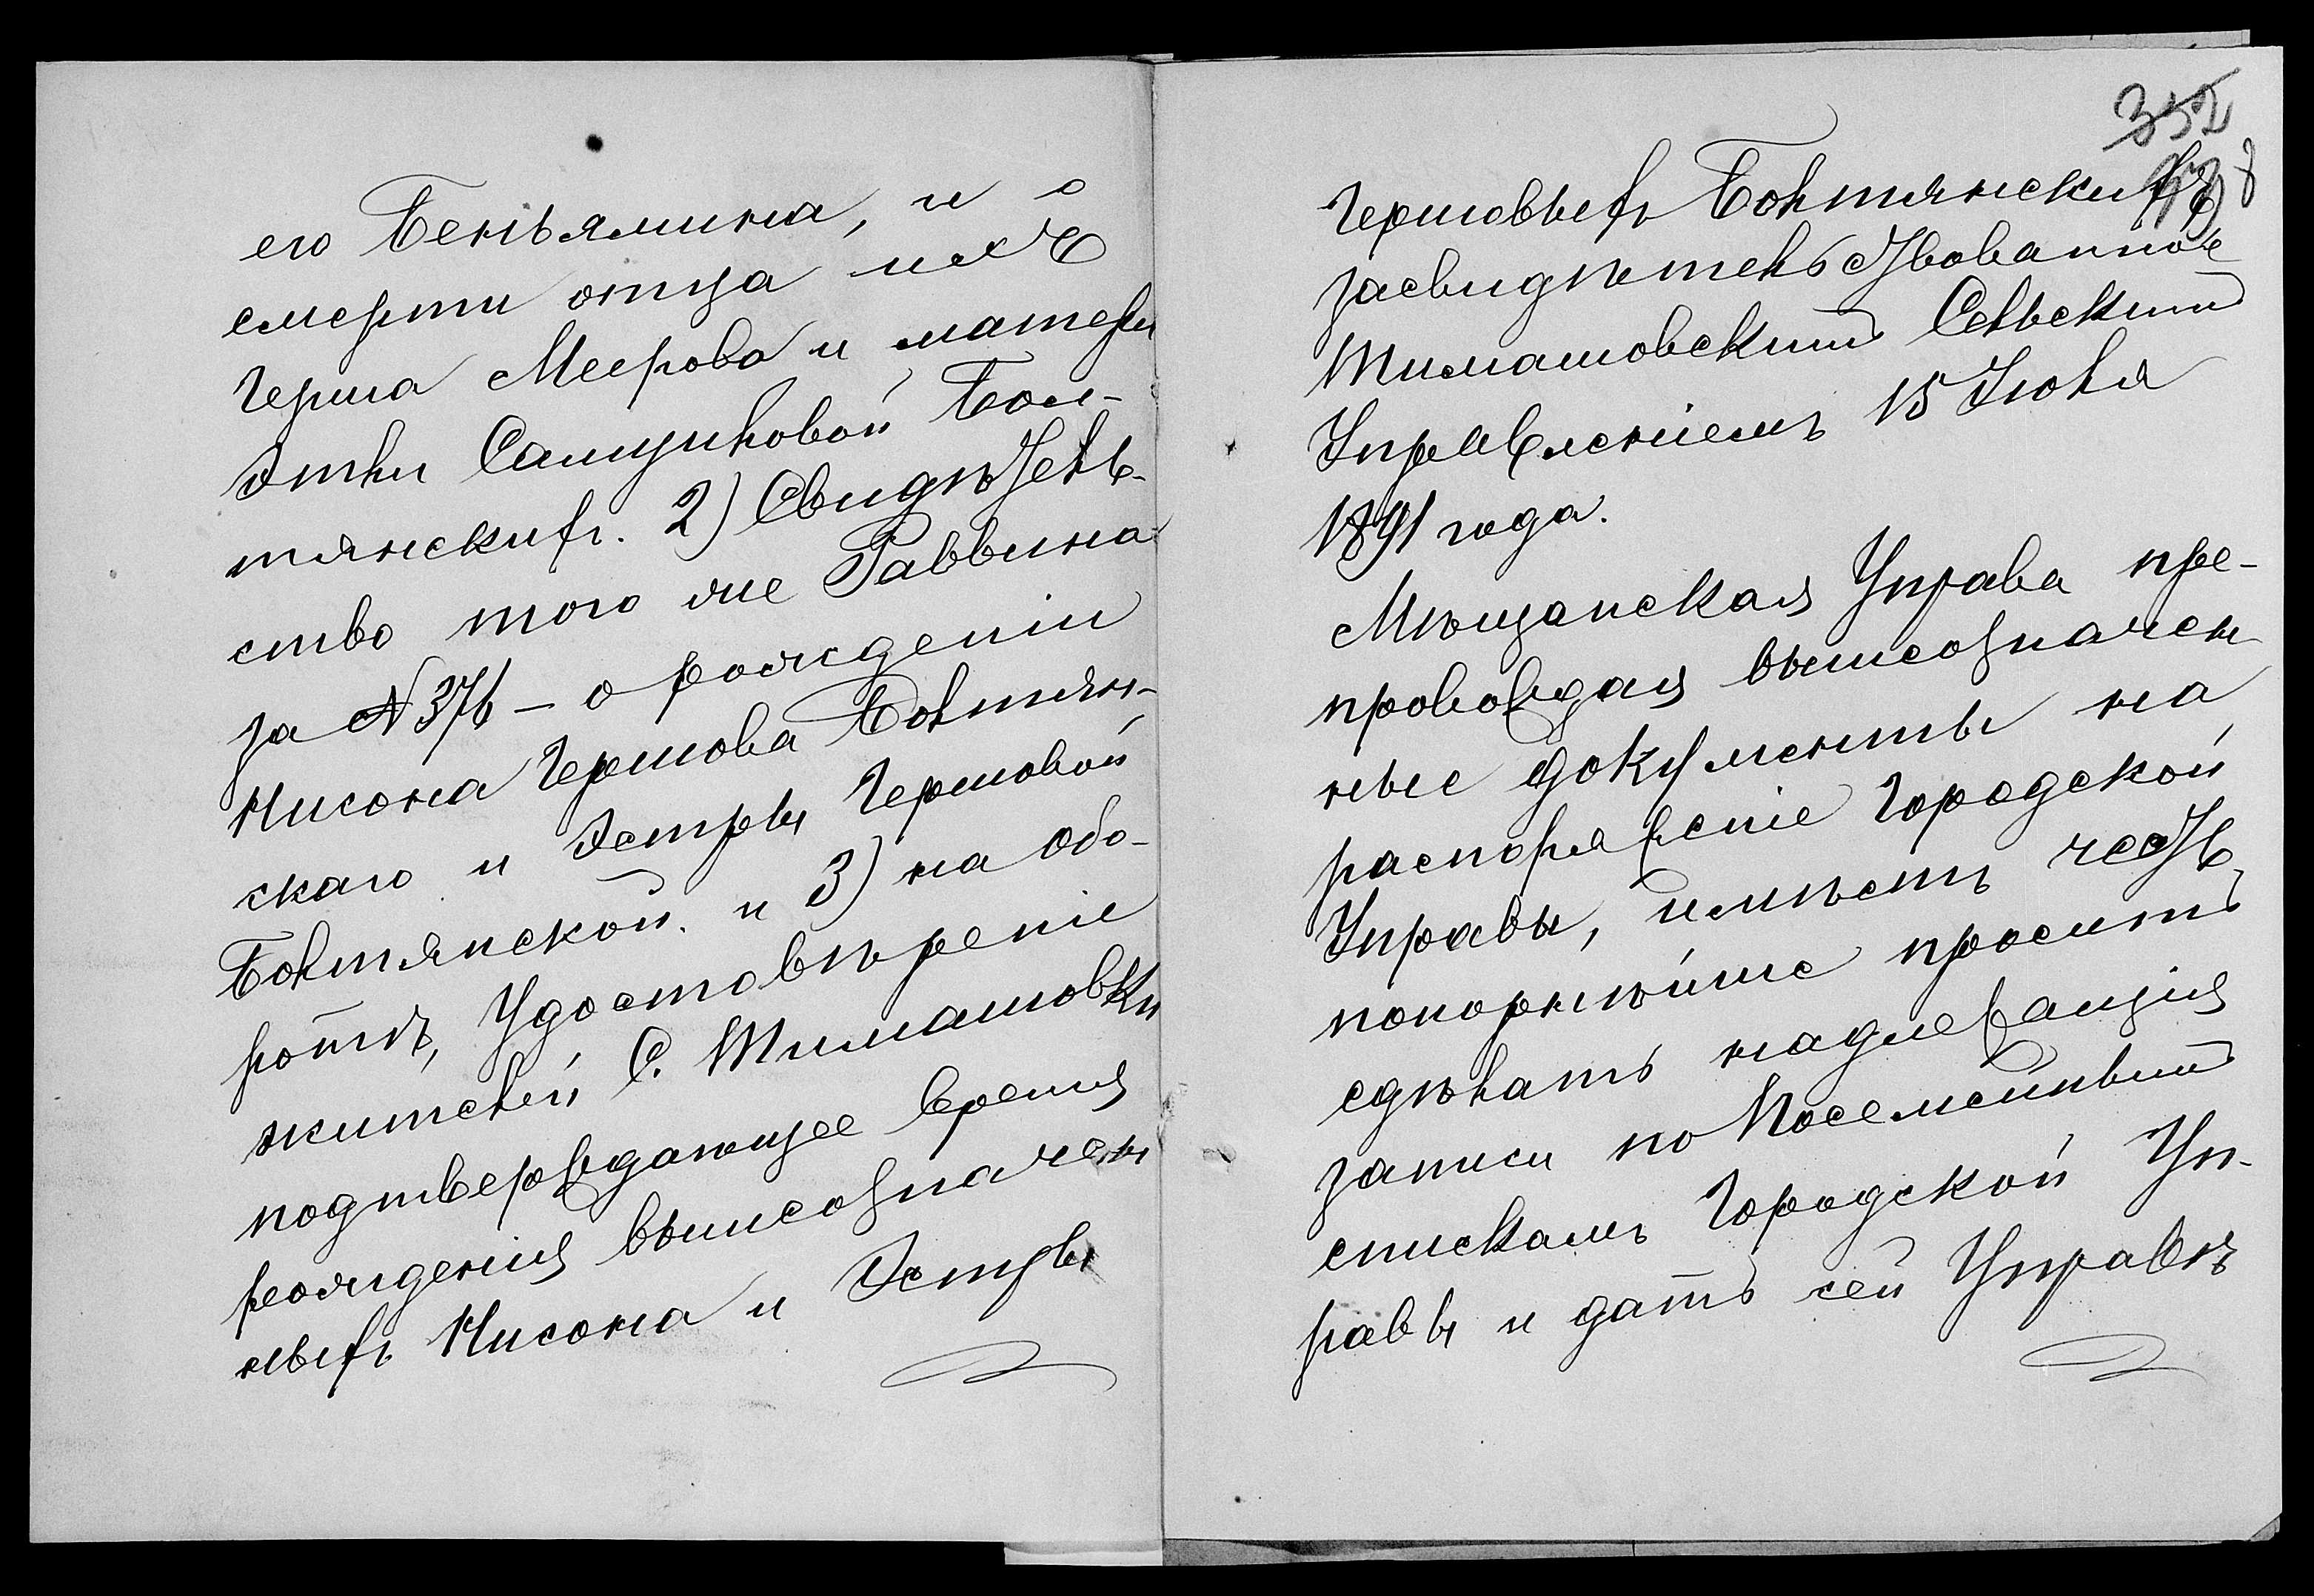 его Беньямина, и о
смерти отца ихъ
Герша Меерова и матери
Этли Самуиловой Бол-
тянскихъ. 2) Свидѣтель-
ство того же Раввина
за № 376 – о рожденіи
Нисона Гершова Болтян-
скаго и Эстры Гершовой
Болтянской. и 3) на обо-
ротѣ, Удостовѣреніе
жителей С. Тимашовки
подтверждающее время
рожденія вышеозначен
ныхъ Нисона и Эстры
352
Гершовыхъ Болтянскихъ
засвидѣтельствованное
Тимашовскимъ Сельскимъ
Управленіемъ 15 Іюля
1891 года.
Мѣщанская Управа пре-
провождая вышеозначен
ные документы на
распоряженіе Городской
Управы, имѣетъ честь
покорнѣйше просить
сдѣлать надлежащія
записи по Посемейнымъ
спискамъ Городской Уп-
равы и дать сей Управѣ